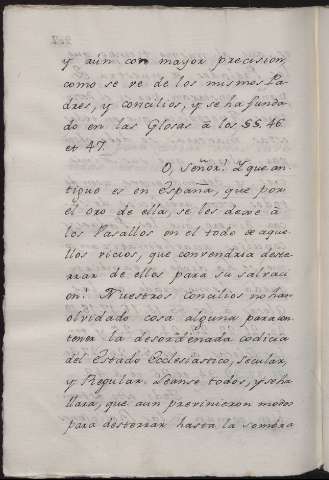 y aún con mayor precision,
como se ve de los mismos Pa-
dres, y concilios, y se ha funda-
do en las Glosas á los §§. 46.
et 47.
O, Señor! Y que an-
tiguo es en España, que por
el oro de ella, se les dexe á
los Vasallos en el todo de aque-
llos vicios, que convendria deste-
rrar de ellos para su salvaci-
on! Nuestros Concilios no han
olvidado cosa alguna para con-
tener la desordenada codicia
del Estado Ecclesiastico, Secular,
y Regular. Leanse todos, y se ha-
llará, que aun previnieron modos
para desterrar hasta la sombra